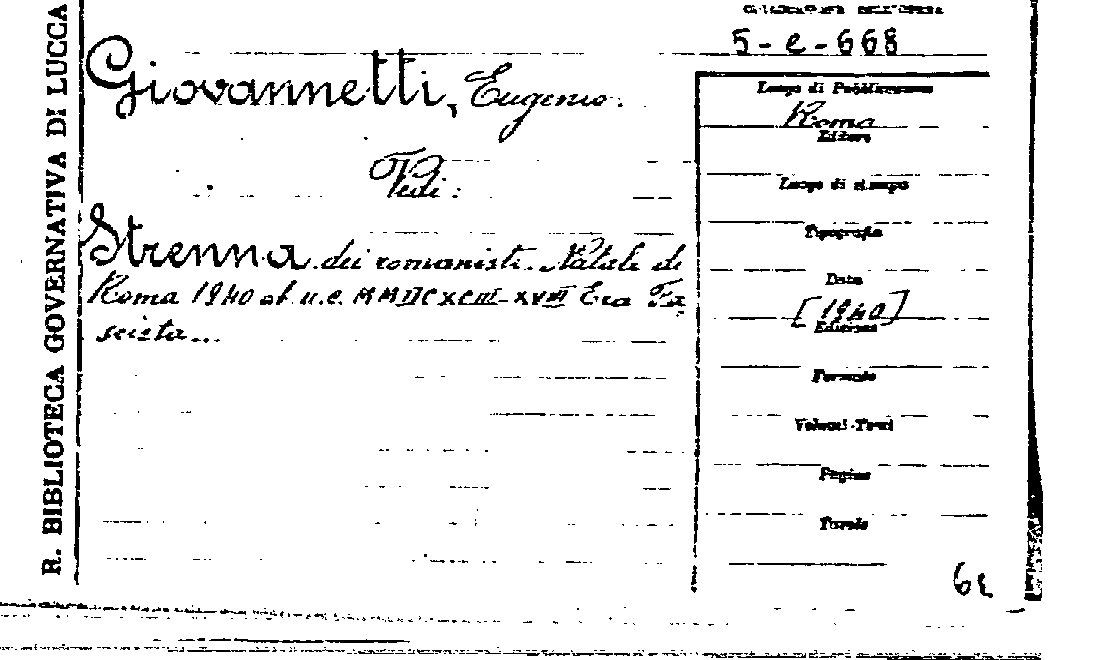 R. BIBLIOTECA GOVERNATIVA DI LUCCA
COLLOCAZIONE DELL'OPERA
5-e-668
Giovannetti, Eugenio.
Vedi:
Strenna dei romanisti. Natale di
Roma 1940 ab u.c. MMDCXCIII-XVIII Era Fa
scista...
Luogo di Pubblicazione
Roma
Editore
Luogo di stampa
Tipografia
Data
[1940]
Edizione
Formato
Volumi-Tomi
Pagine
Tavole